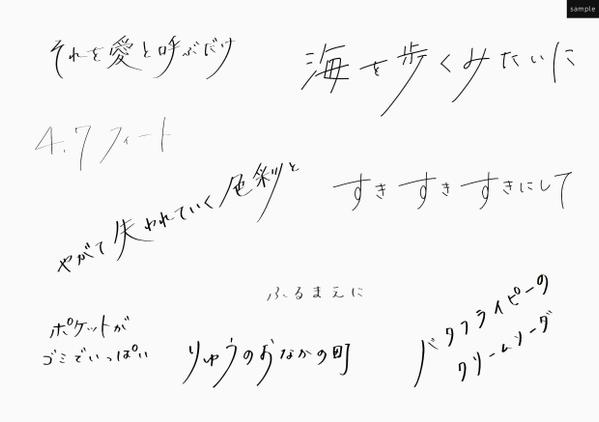 sample
それを愛と呼ぶだけ
海を歩くみたいに
4.7フィート
やがて失われていく色彩と
すきすきすきにして
ふるまえに
ポケットが
ゴミでいっぱい
りゅうのおなかの町
バタフライピーの
クリームソーダ